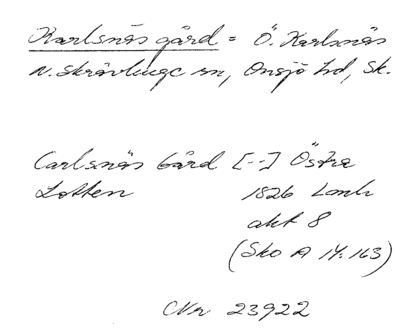 Karlsnäs gård = Ö. Karlsnäs
N. Skrävlinge sn, Onsjö hd, Sk.
Carlsnäs Gård [--] Östra
Lotten 1826 Lantm
akt 8
(Sko A 14.163)
CNr 23922